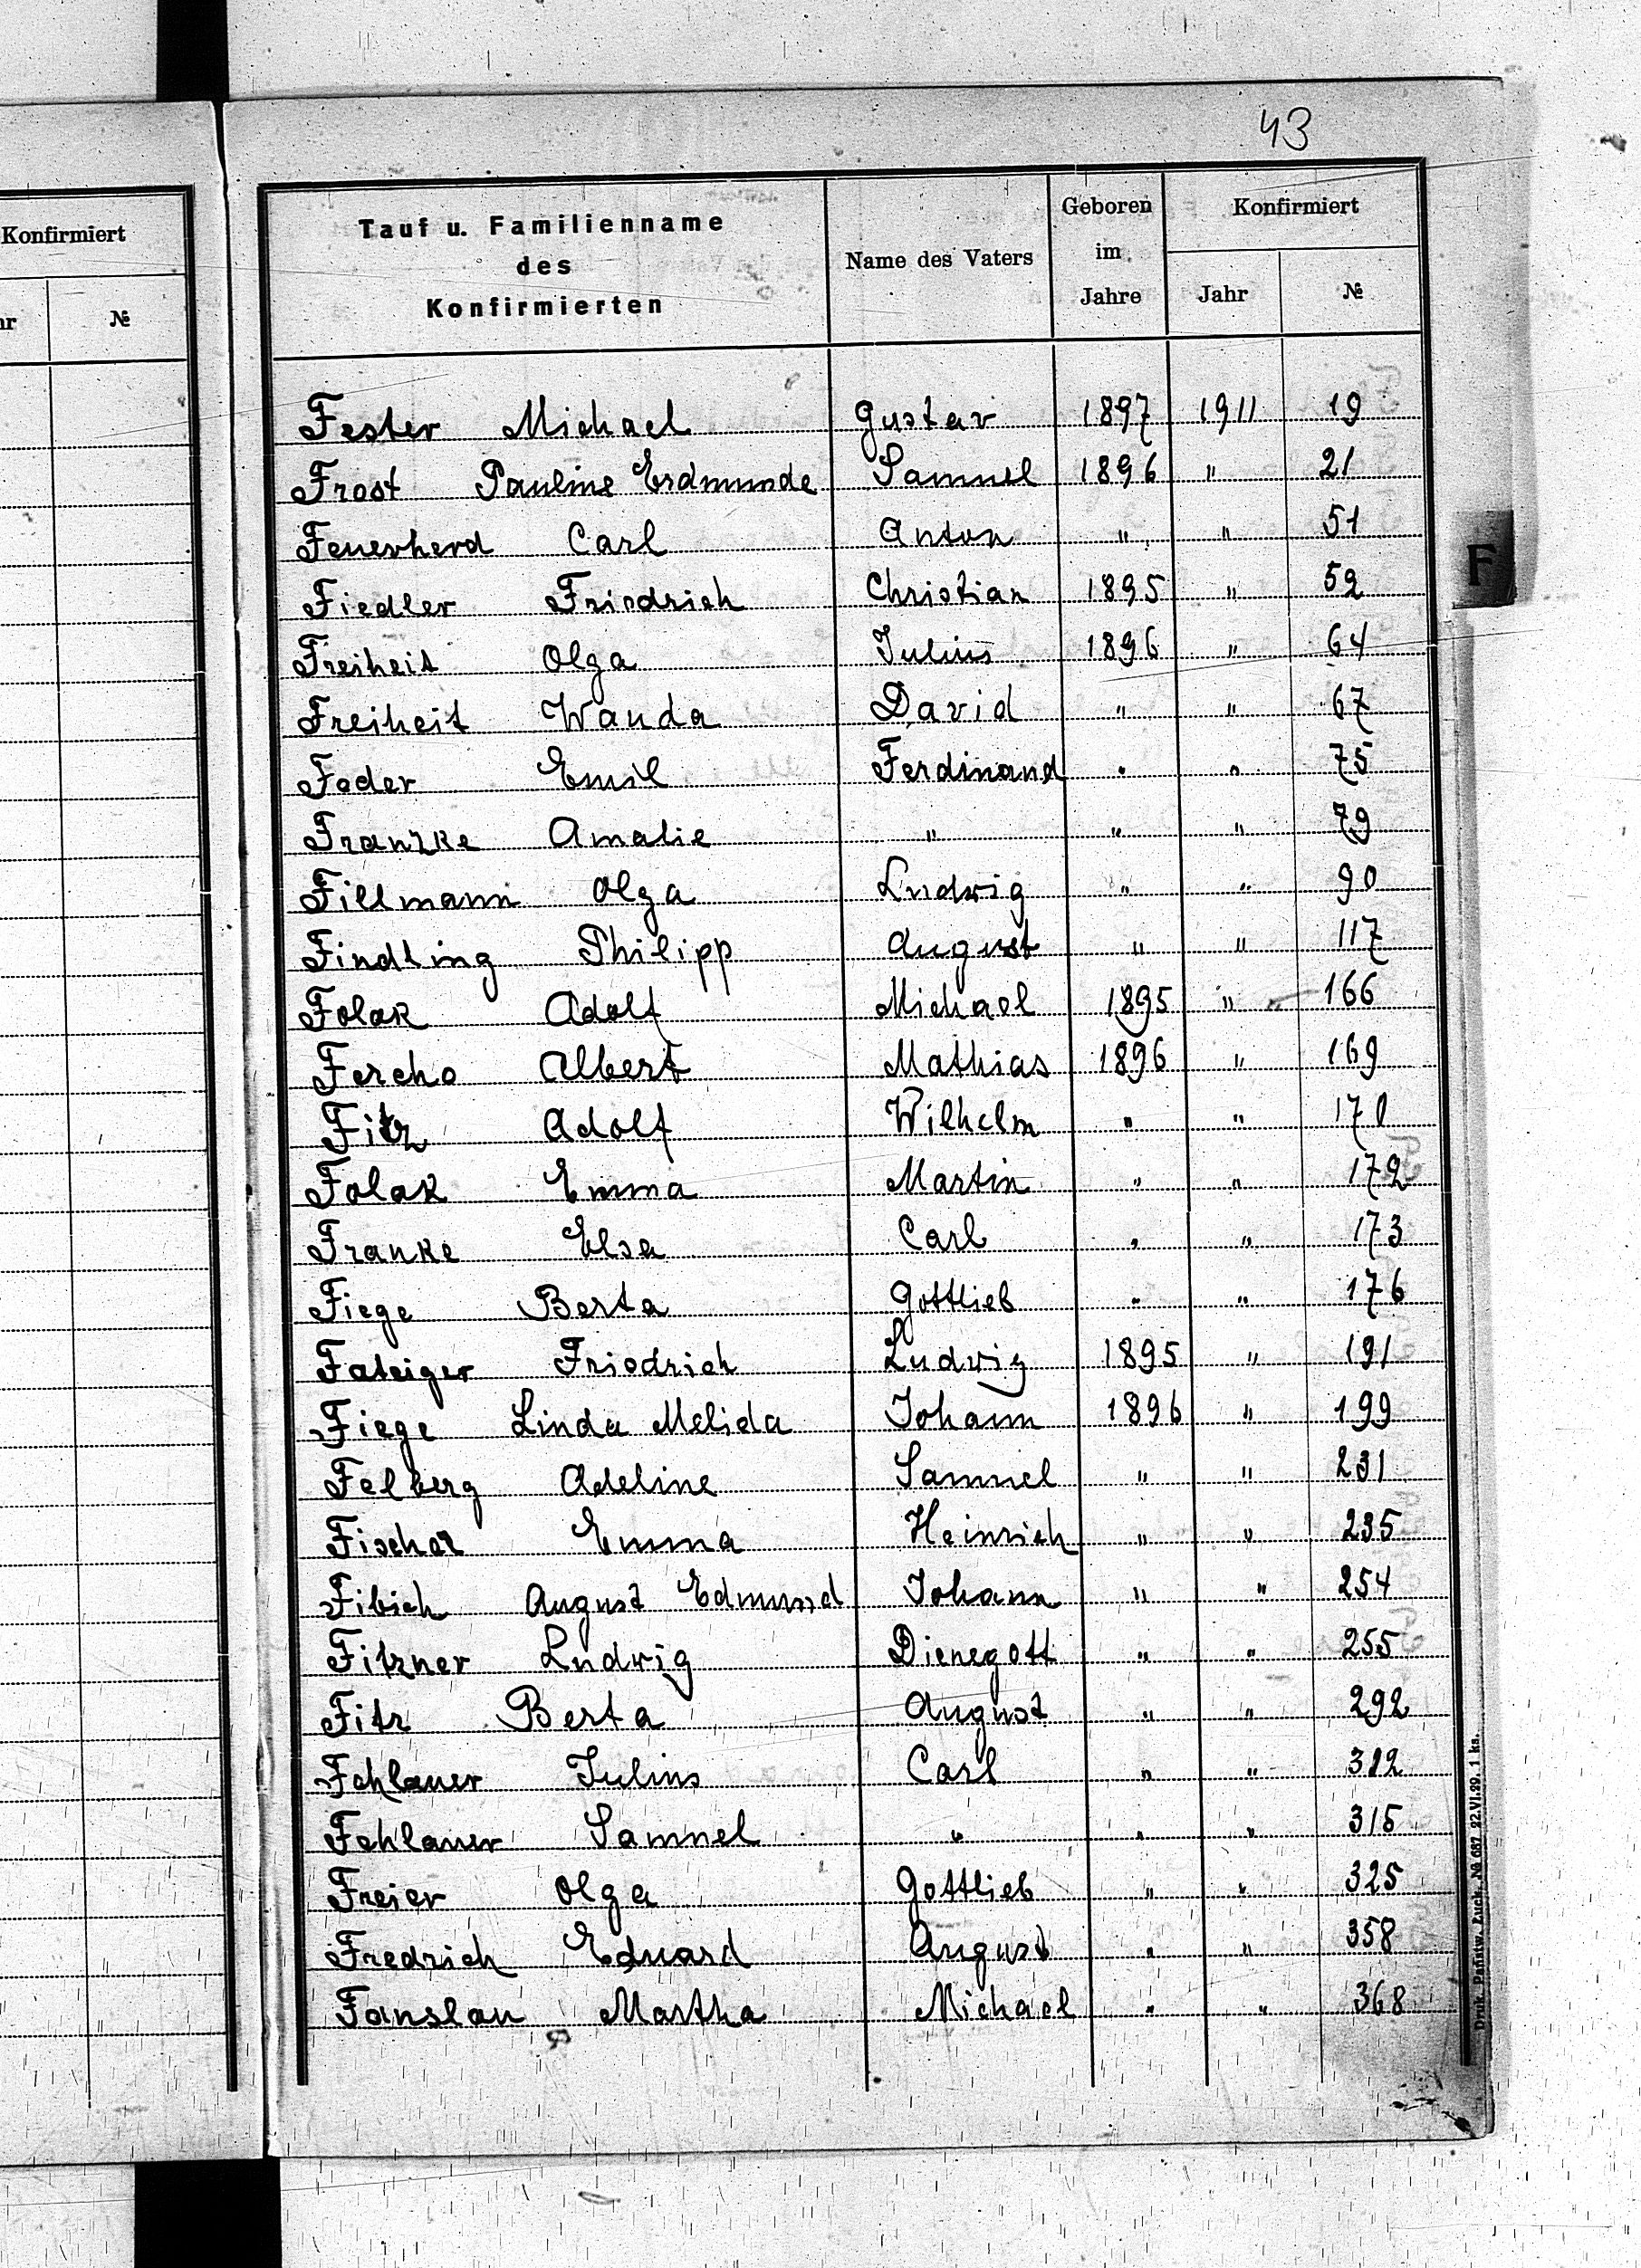 43
Konfirmiert
hr № 
Tauf u. Familienname
des
Konfirmierten
Name des Vaters
Geboren
im
Jahre
Konfirmiert
Jahr №
Fester Michael Gustav 1897 1911 19
Frost Pauline Erdmunde Samuel 1896 " 21
Feuerherd Carl Anton " " 51
Fiedler Friedrich Christian 1895 " 52
Freiheit Olga Julius 1896 " 64
Freiheit Wanda David " " 67
Feder Emil Ferdinand " " 75
Franzke Amalie " " " 79
Fillmann Olga Ludwig " " 90
Findling Philipp August " " 117
Folak Adolf Michael 1895 " 166
Fercho Albert Mathias 1896 " 169
Fitz Adolf Wilhelm " " 170
Folak Emma Martin " " 172
Franke Elsa Carl " " 173
Fiege Berta Gottlieb " " 176
Fateiger Friedrich Ludwig 1895 " 191
Fiege Linda Melida Johann 1896 " 199
Felberg Adeline Samuel " " 231
Fischer Emma Heinrich " " 235
Fibich August Edmund Johann " " 254
Fitzner Ludwig Dienegott " " 255
Fitz Berta August " " 292
Fehlauer Julius Carl " " 312
Fehlauer Samuel " " " 315
Freier Olga Gottlieb " " 325
Fredrich Eduard August " " 358
Fanslau Martha Michael " " 368
F
Druk. Państw. Łuck. № 687 22.VI.29. 1 ks.